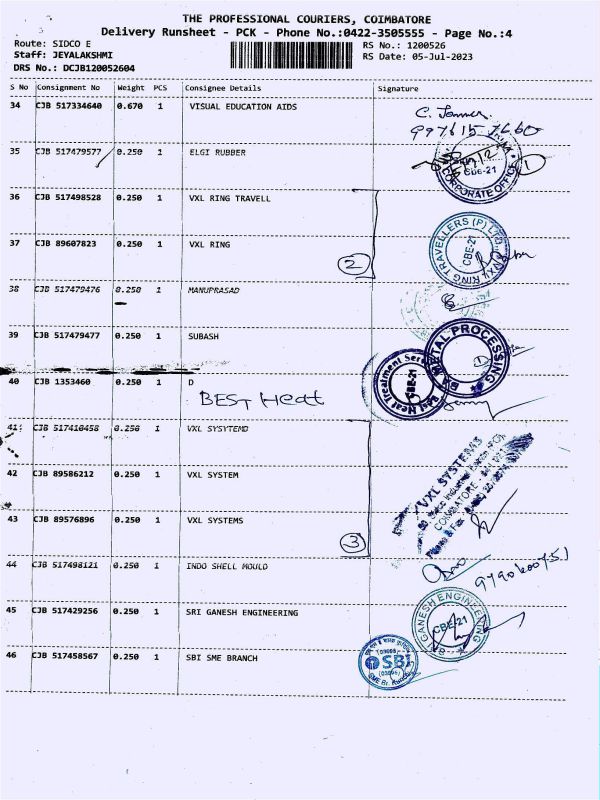 THE PROFESSIONAL COURIERS, COIMBATORE
Delivery Runsheet - PCK - Phone No.:0422-3505555 - Page No.:4
Route: SIDCO E
RS No.: 1200526
Staff: JEYALAKSHMI
RS Date: 05-Jul-2023
DRS No.: DCJB120052604
S No Consignment No Weight PCS Consignee Details Signature
34 CJB 517334640 0.670 1 VISUAL EDUCATION AIDS
35 CJB 517479577 0.250 1 ELGI RUBBER
CBE-21
CORPORATE OFFICE
1
36 CJB 517498528 0.250 1 VXL RING TRAVELL
37 CJB 89607823 0.250 1 VXL RING
2
VXL RING TRAVELLERS (P) LTD
CBE-21
38 CJB 517479476 0.250 1 MANUPRASAD
39 CJB 517479477 0.250 1 SUBASH
METAL PROCESSING
40 CJB 1353460 0.250 1 D
BEST Heat
Heat Treatment
CBE-21
41 CJB 517410458 0.250 1 VXL SYSYTEMD
42 CJB 89586212 0.250 1 VXL SYSTEM
43 CJB 89576896 0.250 1 VXL SYSTEMS
3
VXL SYSTEMS
COIMBATORE
44 CJB 517498121 0.250 1 INDO SHELL MOULD
45 CJB 517429256 0.250 1 SRI GANESH ENGINEERING
GANESH ENGINEERING
CBE-21
46 CJB 517458567 0.250 1 SBI SME BRANCH
SBI